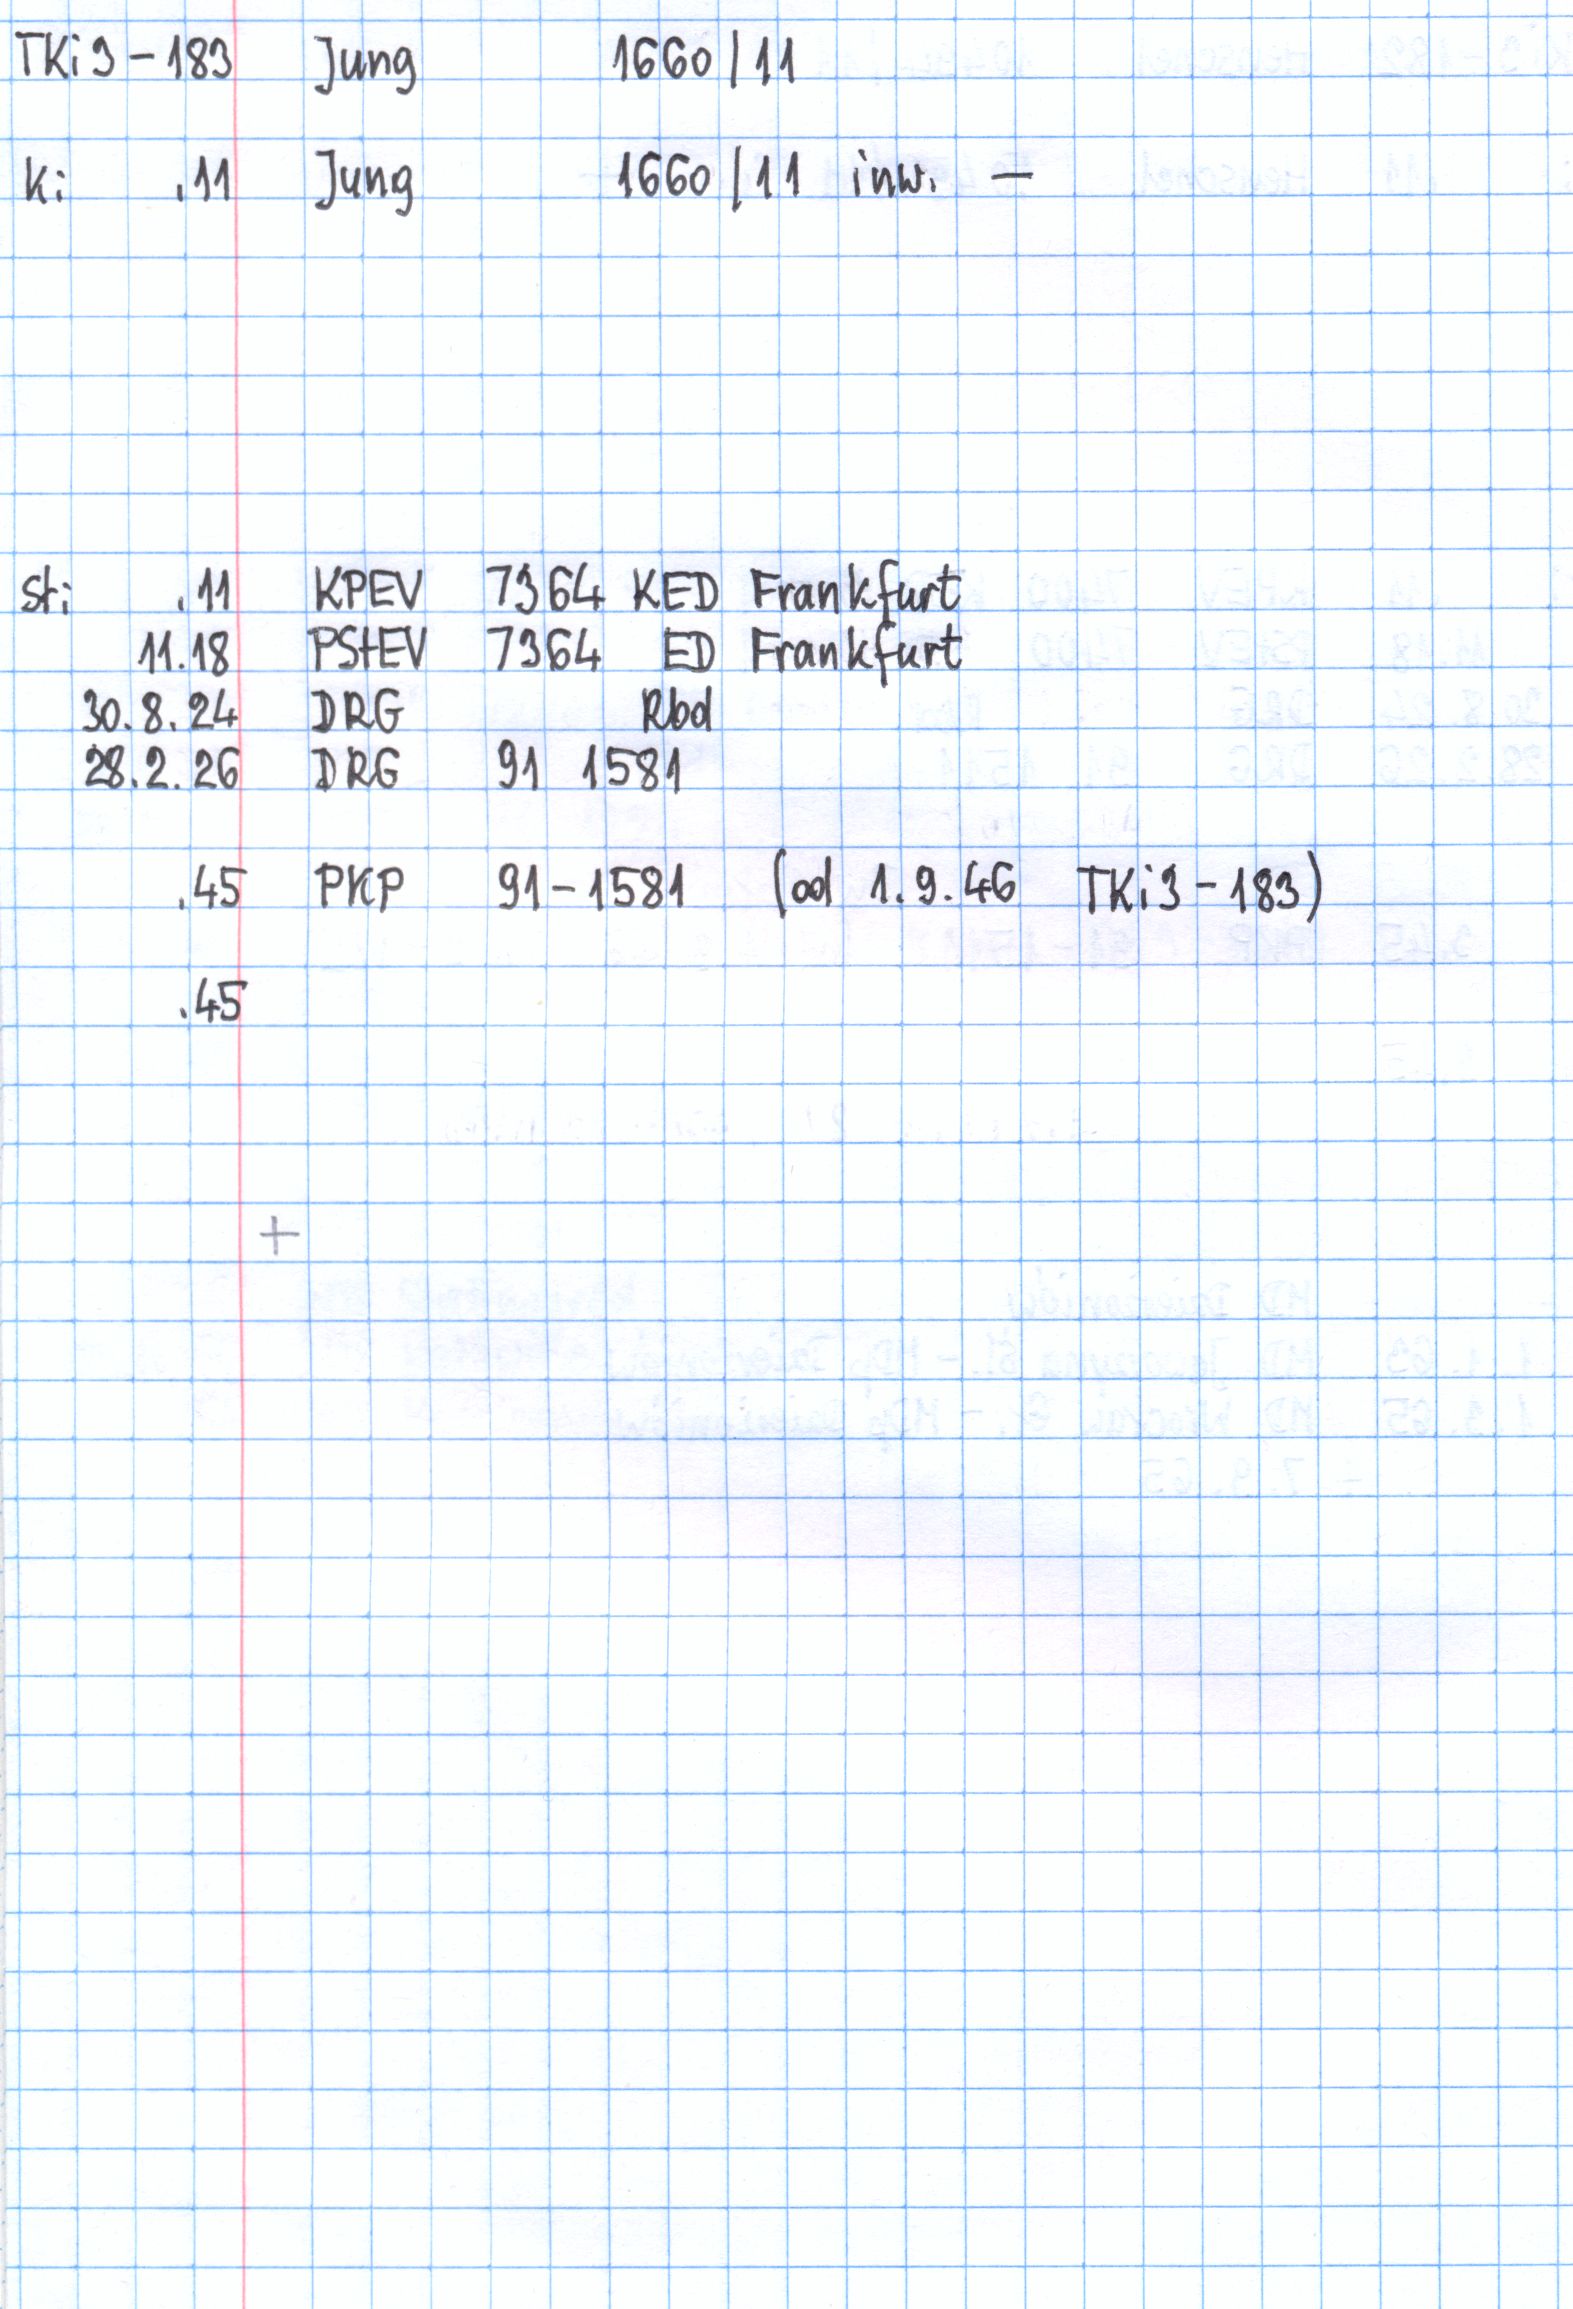 TKi3-183 Jung 1660/11
k: .11 Jung 1660/11 inw. —
st: .11 KPEV 7364 KED Frankfurt
11.18 PStEV 7364 ED Frankfurt
30.8.24 DRG Rbd
28.2.26 DRG 91 1581
.45 PKP 91-1581 (od 1.9.46 TKi3-183)
.45
+